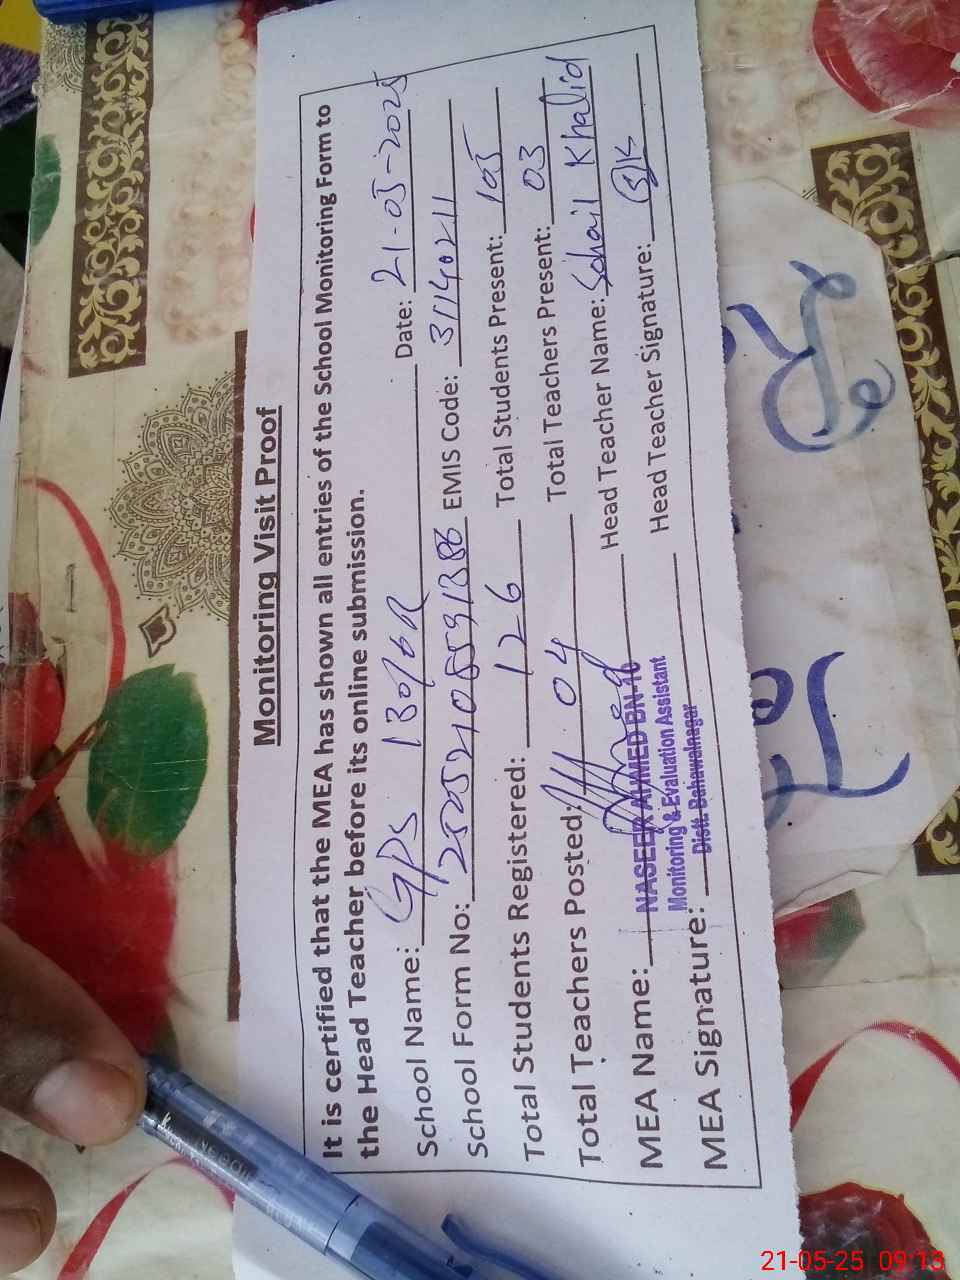 Monitoring Visit Proof
It is certified that the MEA has shown all entries of the School Monitoring Form to
the Head Teacher before its online submission.
School Name: GPS Date: 21-05-2025
School Form No: EMIS Code: 31140211
Total Students Registered: 126 Total Students Present: 105
Total Teachers Posted: 04 Total Teachers Present: 03
MEA Name: Head Teacher Name: Sohail Khalid
NASEER AHMED BN-16
Monitoring & Evaluation Assistant
Distt. Bahawalnagar
MEA Signature: Head Teacher Signature:
21-05-25 09:13